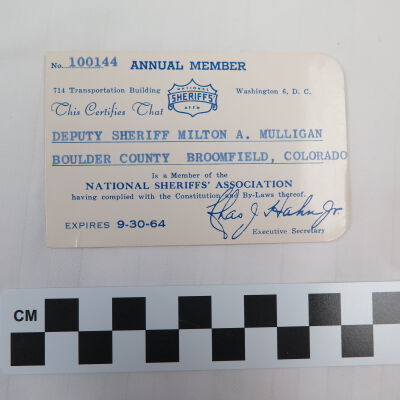 No. 100144 ANNUAL MEMBER
714 Transportation Building NATIONAL SHERIFFS' ASSN Washington 6, D. C.
This Certifies That
DEPUTY SHERIFF MILTON A. MULLIGAN
BOULDER COUNTY BROOMFIELD, COLORADO
Is a Member of the
NATIONAL SHERIFFS' ASSOCIATION
having complied with the Constitution and By-Laws thereof.
Chas J. Hahn Jr.
EXPIRES 9-30-64 Executive Secretary
CM